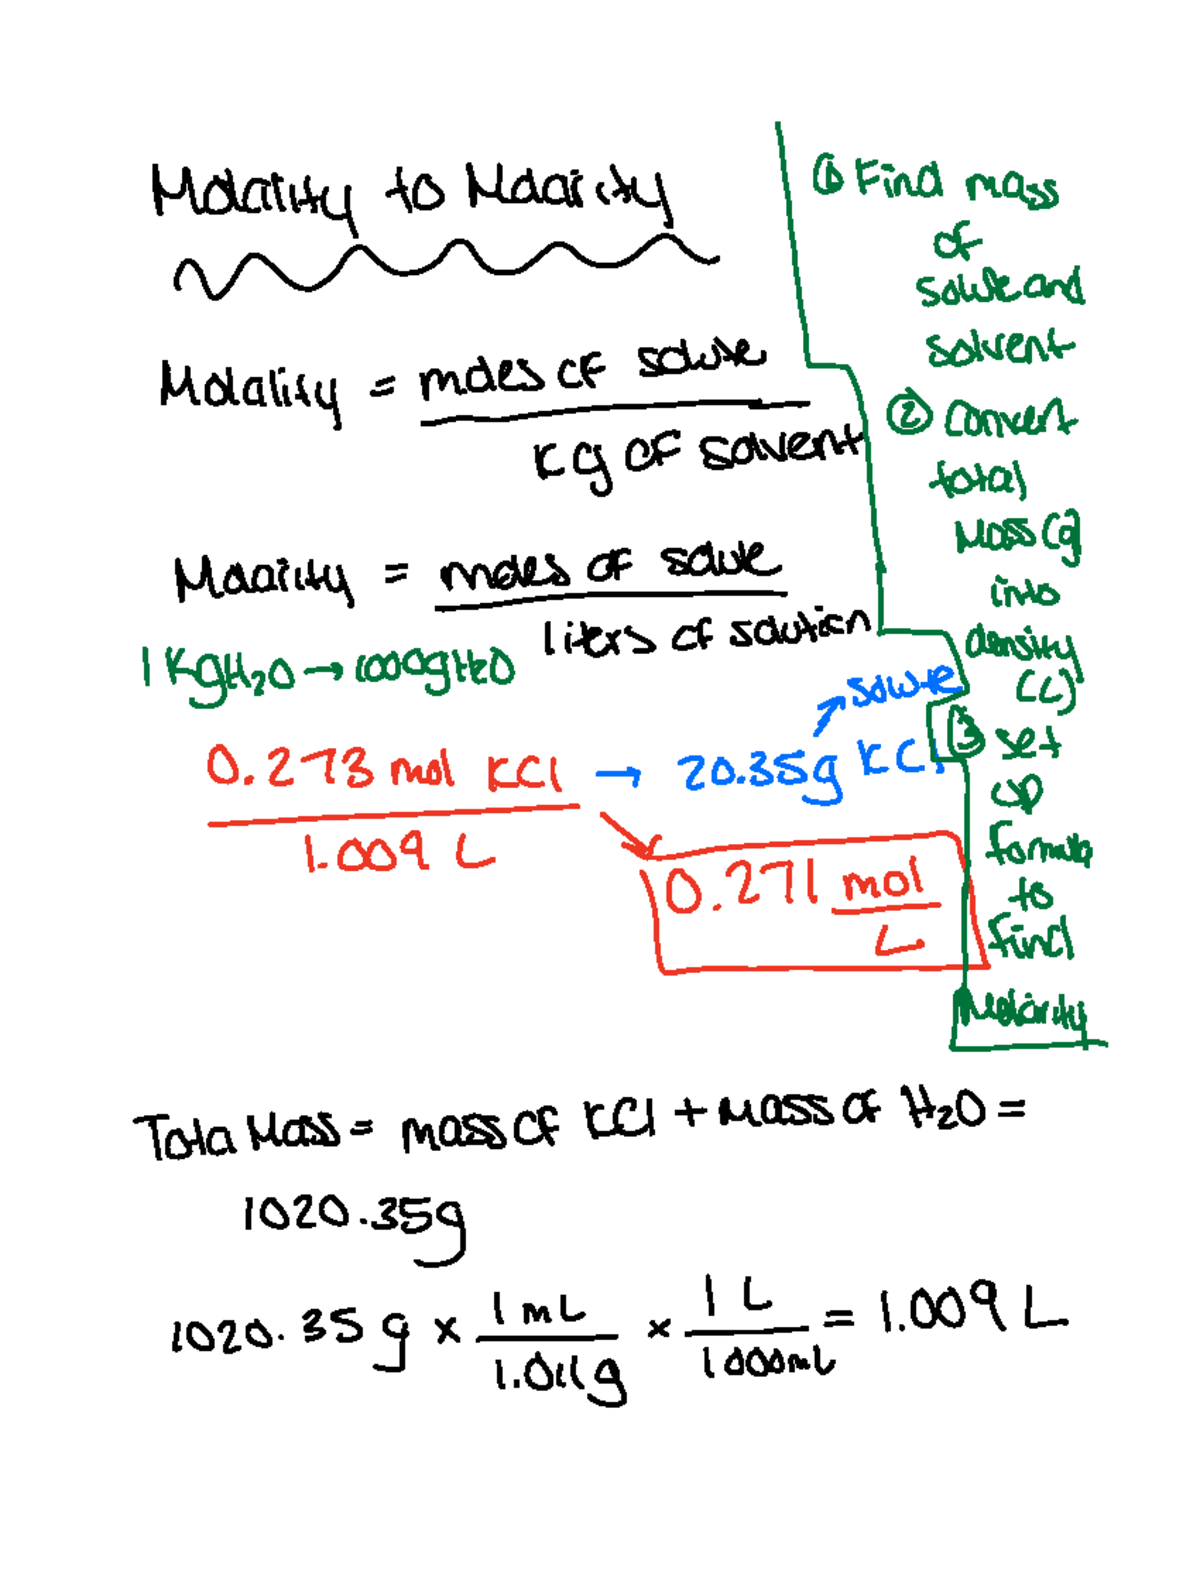 Molality to Molarity
Molality = moles of solute
kg of solvent
Molarity = moles of solute
liters of solution
1 kg H₂O → 1000g H₂O
0.273 mol KCl → 20.35g KCl
solute
1.009 L
0.271 mol
L
① Find mass
of
solute and
solvent
② Convert
total
Mass (g)
into
density
(L)
③ set
up
formula
to
find
Molarity
Total Mass = mass of KCl + Mass of H₂O =
1020.35g
1020.35 g x 1 mL x 1 L = 1.009 L
1.011g 1000mL